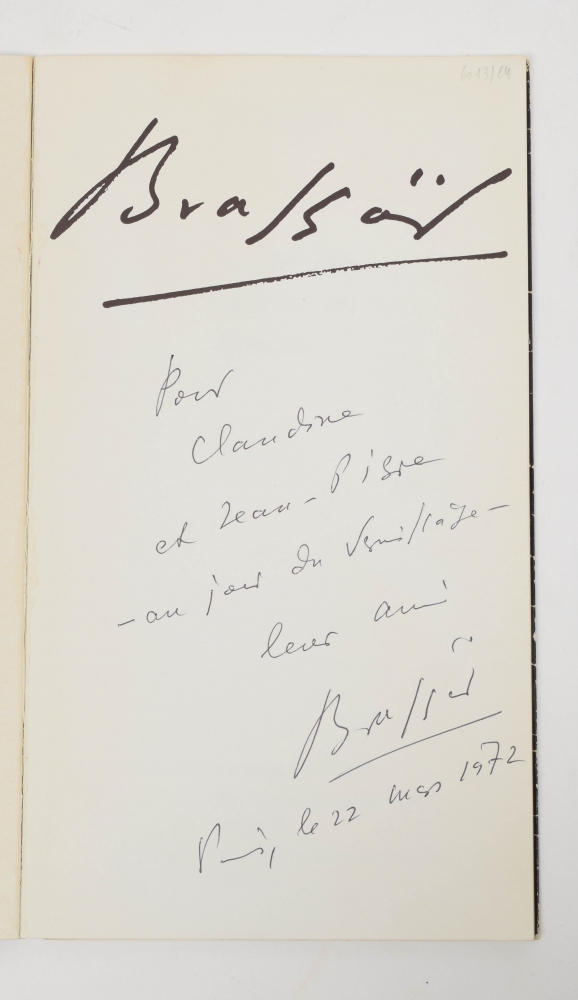 6013/24
Brassaï
Pour
Claudine
et Jean-Pierre
- au jour du vernissage -
leur ami
Brassaï
Paris, le 22 mars 1972